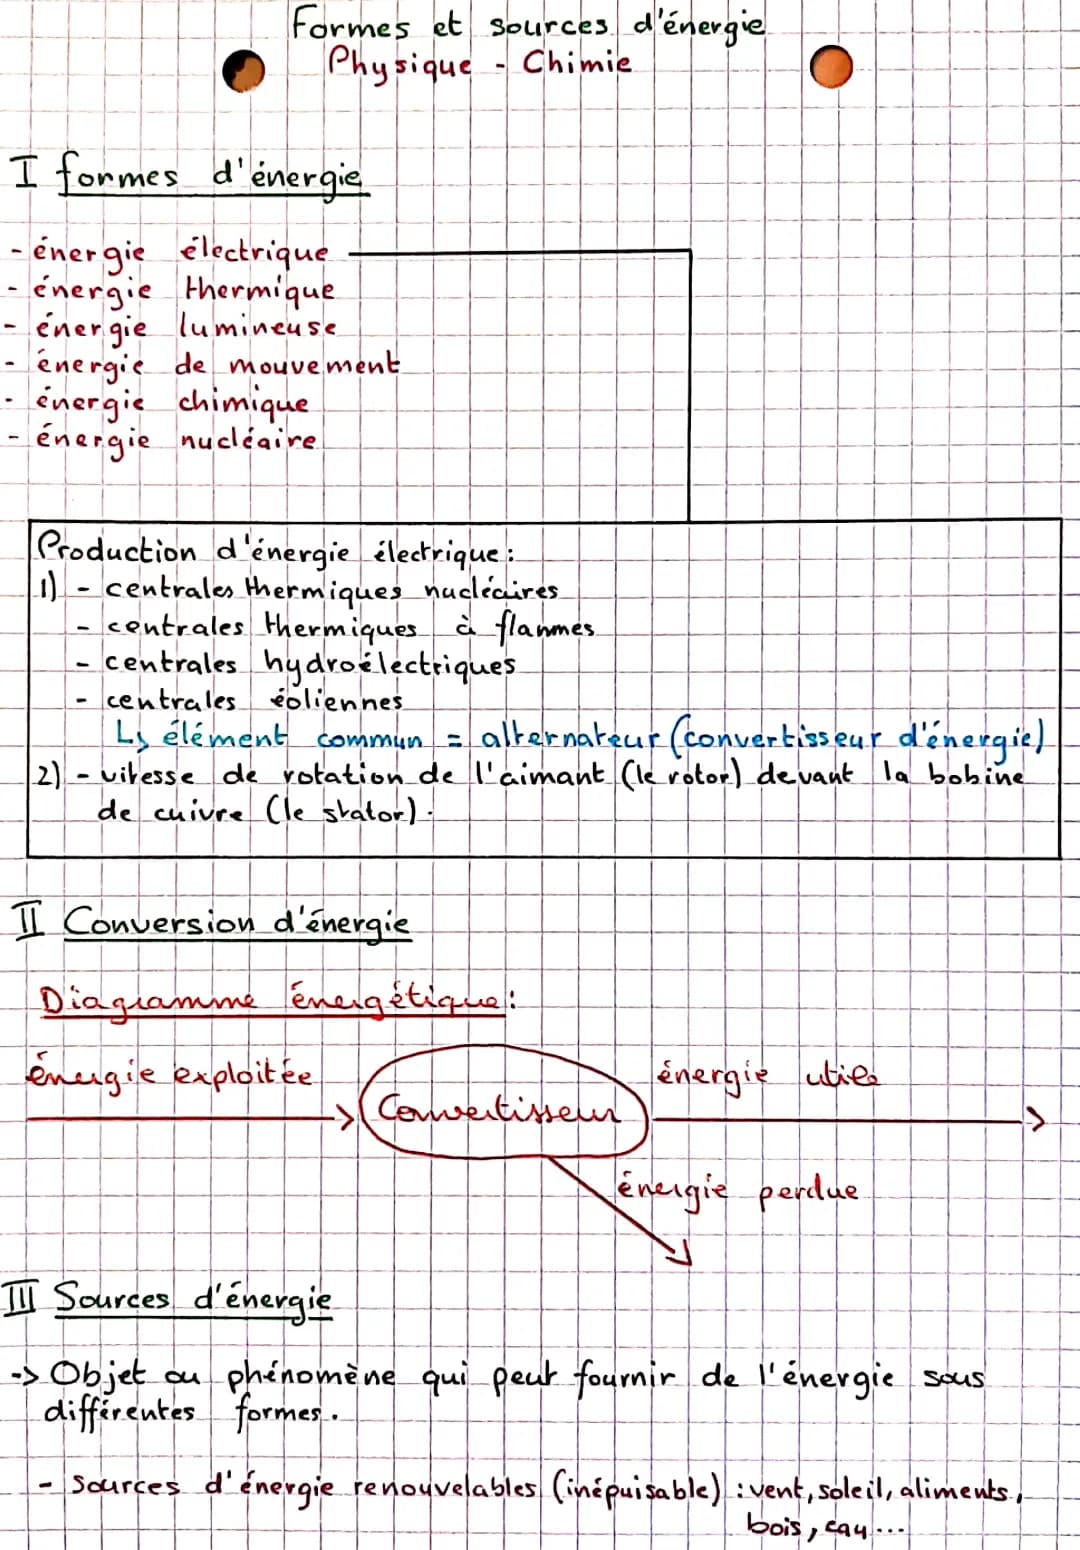 Formes et sources d'énergie
Physique - Chimie
I formes d'énergie
- énergie électrique
- énergie thermique
- énergie lumineuse
- énergie de mouvement
- énergie chimique
- énergie nucléaire
Production d'énergie électrique :
1) - centrales thermiques nucléaires
- centrales thermiques à flammes
- centrales hydroélectriques
- centrales éoliennes
↳ élément commun = alternateur (convertisseur d'énergie)
2) - vitesse de rotation de l'aimant (le rotor) devant la bobine
de cuivre (le stator).
II Conversion d'énergie
Diagramme énergétique :
énergie exploitée
Convertisseur
énergie utile
énergie perdue
III Sources d'énergie
-> Objet ou phénomène qui peut fournir de l'énergie sous
différentes formes.
- Sources d'énergie renouvelables (inépuisable) : vent, soleil, aliments,
bois, eau...